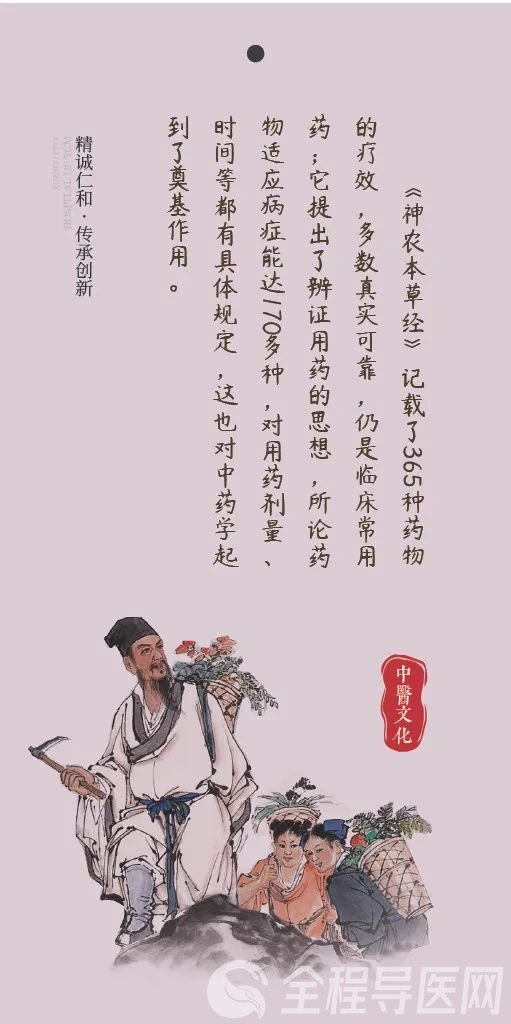 《神农本草经》记载了365种药物
的疗效,多数真实可靠,仍是临床常用
药;它提出了辨证用药的思想,所论药
物适应病症能达170多种,对用药剂量、
时间等都有具体规定,这也对中药学起
到了奠基作用。
精诚仁和·传承创新
中醫文化
全程导医网